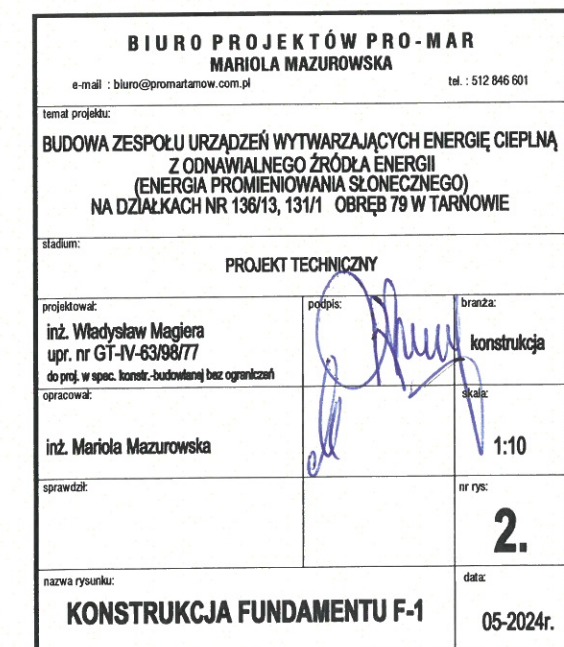 BIURO PROJEKTÓW PRO-MAR
MARIOLA MAZUROWSKA
e-mail : biuro@promartarnow.com.pl tel. : 512 846 601
temat projektu:
BUDOWA ZESPOŁU URZĄDZEŃ WYTWARZAJĄCYCH ENERGIĘ CIEPLNĄ
Z ODNAWIALNEGO ŹRÓDŁA ENERGII
(ENERGIA PROMIENIOWANIA SŁONECZNEGO)
NA DZIAŁKACH NR 136/13, 131/1 OBRĘB 79 W TARNOWIE
stadium:
PROJEKT TECHNICZNY
projektował:
inż. Władysław Magiera
upr. nr GT-IV-63/98/77
do proj. w spec. konstr.-budowlanej bez ograniczeń
podpis:
branża:
konstrukcja
opracował:
inż. Mariola Mazurowska
skala:
1:10
sprawdził:
nr rys:
2.
nazwa rysunku:
KONSTRUKCJA FUNDAMENTU F-1
data:
05-2024r.